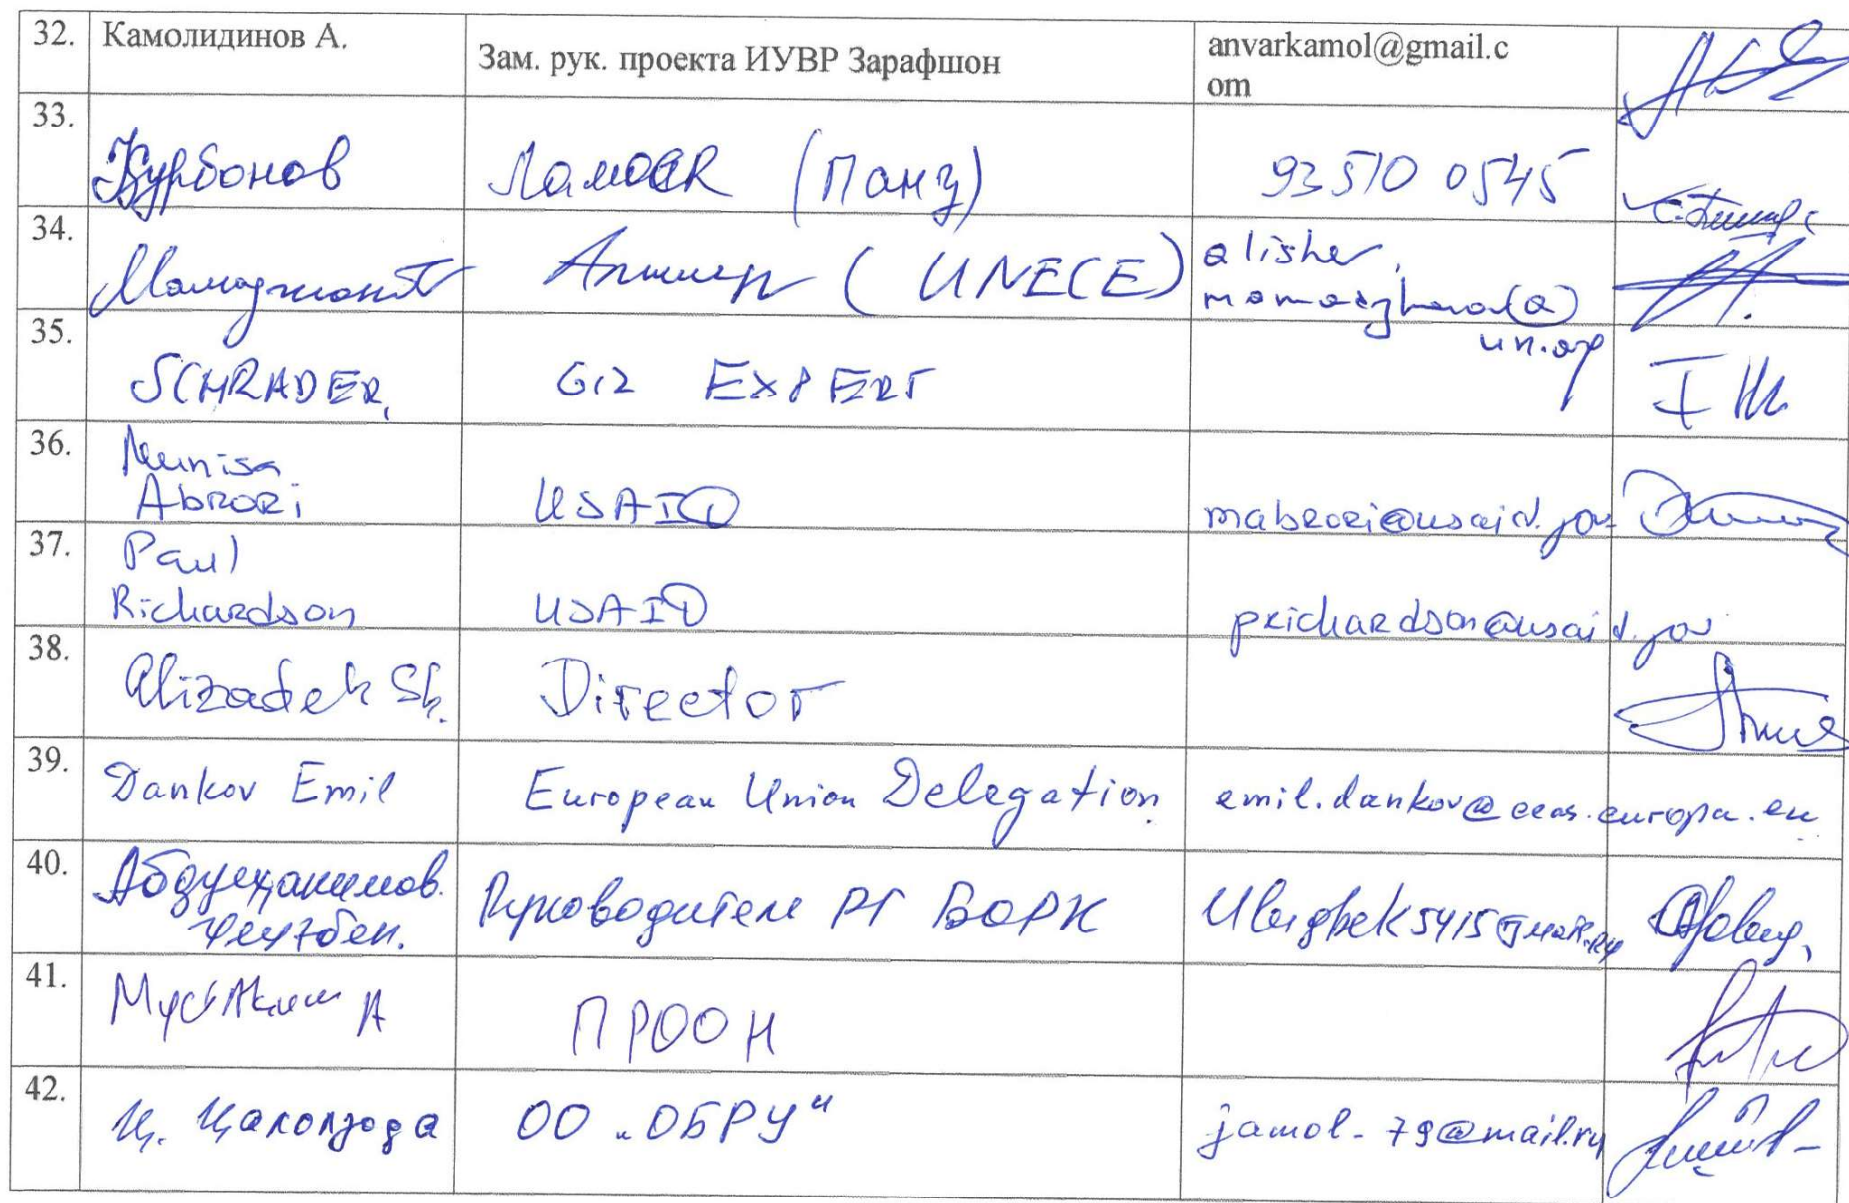 32. Камолидинов А. Зам. рук. проекта ИУВР Зарафшон anvarkamol@gmail.c
om
33. Курбонов (Панҷ) 93 510 0545
34. Алишер (UNECE) alisher.
un.org
35. SCHRADER, GIZ EXPERT
36. Munisa
Abrori USAID mabrori@usaid.gov
37. Paul
Richardson USAID prichardson@usaid.gov
38. Alizadeh Sh. Director
39. Dankov Emil European Union Delegation emil.dankov@eeas.europa.eu
40. Руководитель РГ БОРК
41. А ПРООН
42. Ҷ. Ҷамолзода ОО "ОБРУ" jamol-79@mail.ru